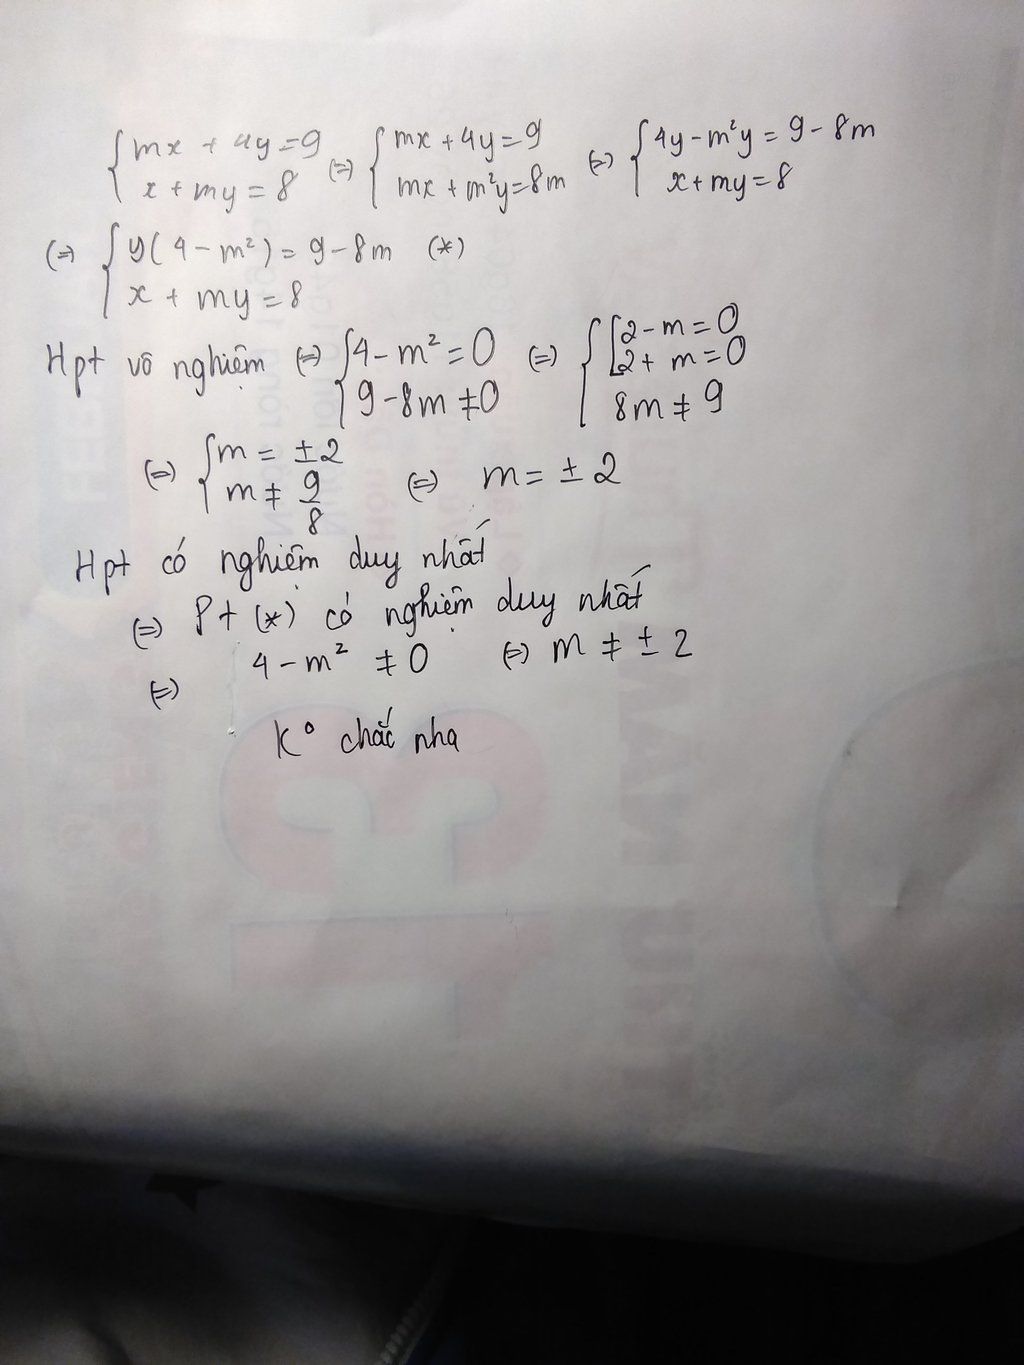 {mx + 4y = 9
x + my = 8 (=) {mx + 4y = 9
mx + m²y = 8m (=) {4y - m²y = 9 - 8m
x + my = 8
(=) {y(4 - m²) = 9 - 8m (*)
x + my = 8
Hpt vô nghiệm (=) {4 - m² = 0
9 - 8m ≠ 0 (=) {[2 - m = 0
2 + m = 0
8m ≠ 9
(=) {m = ±2
m ≠ 9/8 (=) m = ±2
Hpt có nghiệm duy nhất
(=) Pt (*) có nghiệm duy nhất
(=) 4 - m² ≠ 0 (=) m ≠ ±2
K° chắc nha